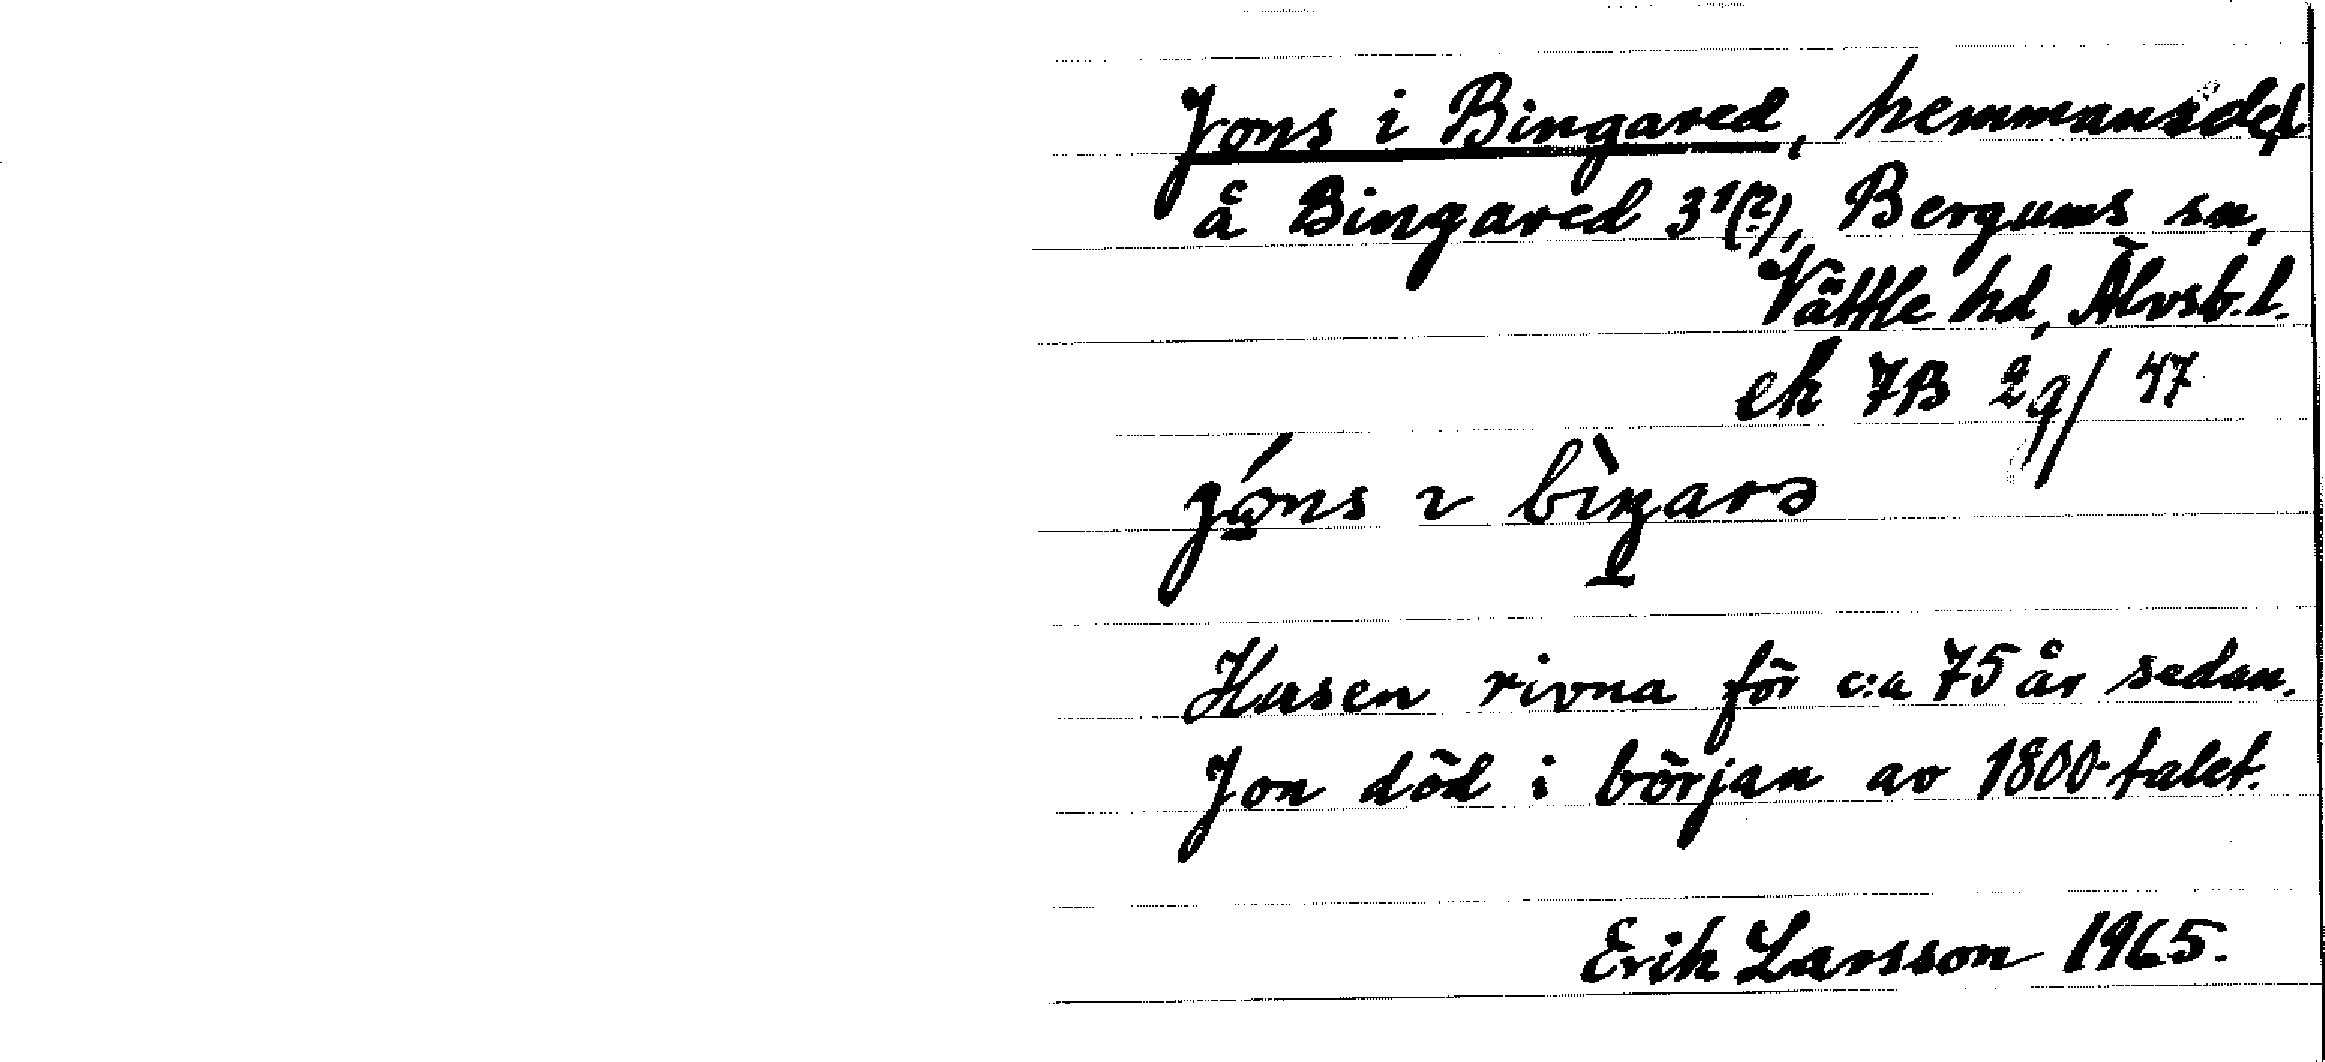 Jons i Bingared, hemmansdel
å Bingared 3¹(?), Bergums sn,
Vättle hd, Älvsb. l.
ek 7B 2g/ 47
Husen rivna för c:a 75 år sedan.
Jon död i början av 1800-talet.
Erik Larsson 1965.